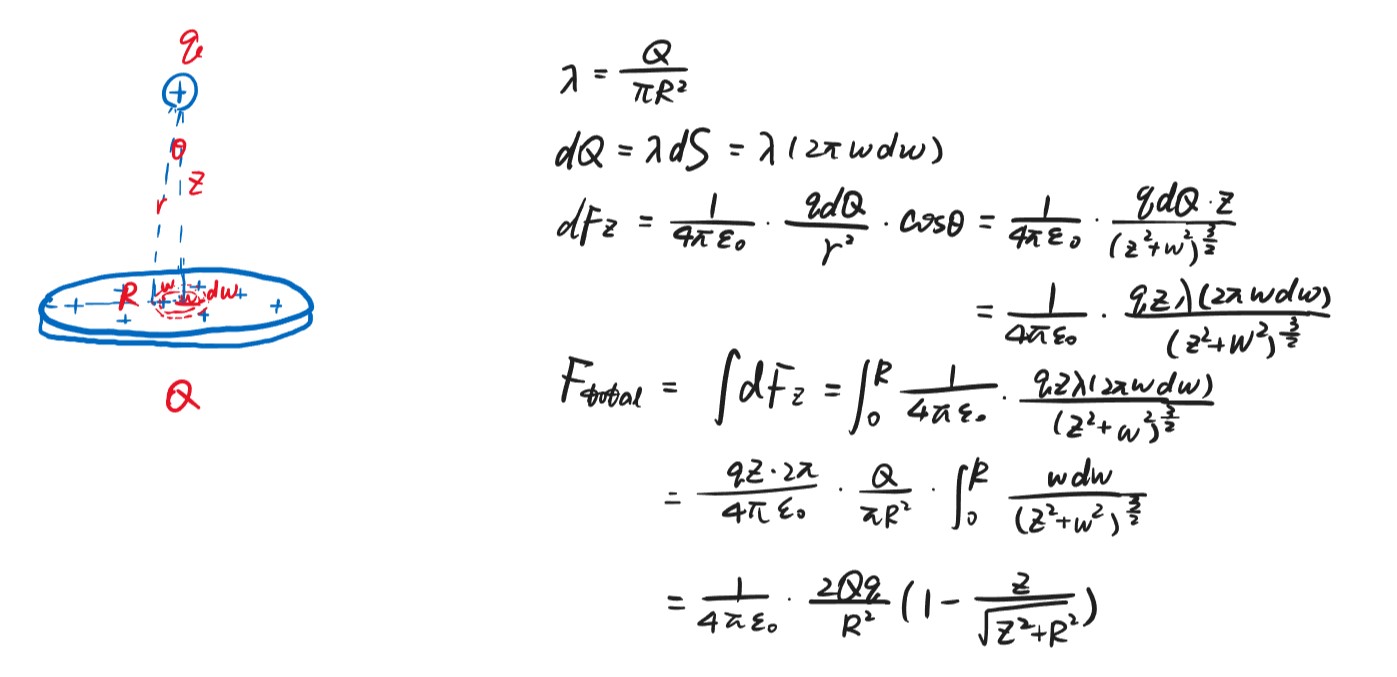 q
+
θ
z
r
+ R w dw + + + + +
Q
λ = Q/(πR²)
dQ = λdS = λ(2πwdw)
dFz = 1/(4πε₀) · qdQ/r² · cosθ = 1/(4πε₀) · qdQ·z/(z²+w²)^(3/2)
= 1/(4πε₀) · qzλ(2πwdw)/(z²+w²)^(3/2)
Ftotal = ∫dFz = ∫₀ᴿ 1/(4πε₀) · qzλ(2πwdw)/(z²+w²)^(3/2)
= qz·2π/(4πε₀) · Q/(πR²) · ∫₀ᴿ wdw/(z²+w²)^(3/2)
= 1/(4πε₀) · 2Qq/R² (1 - z/√(z²+R²))